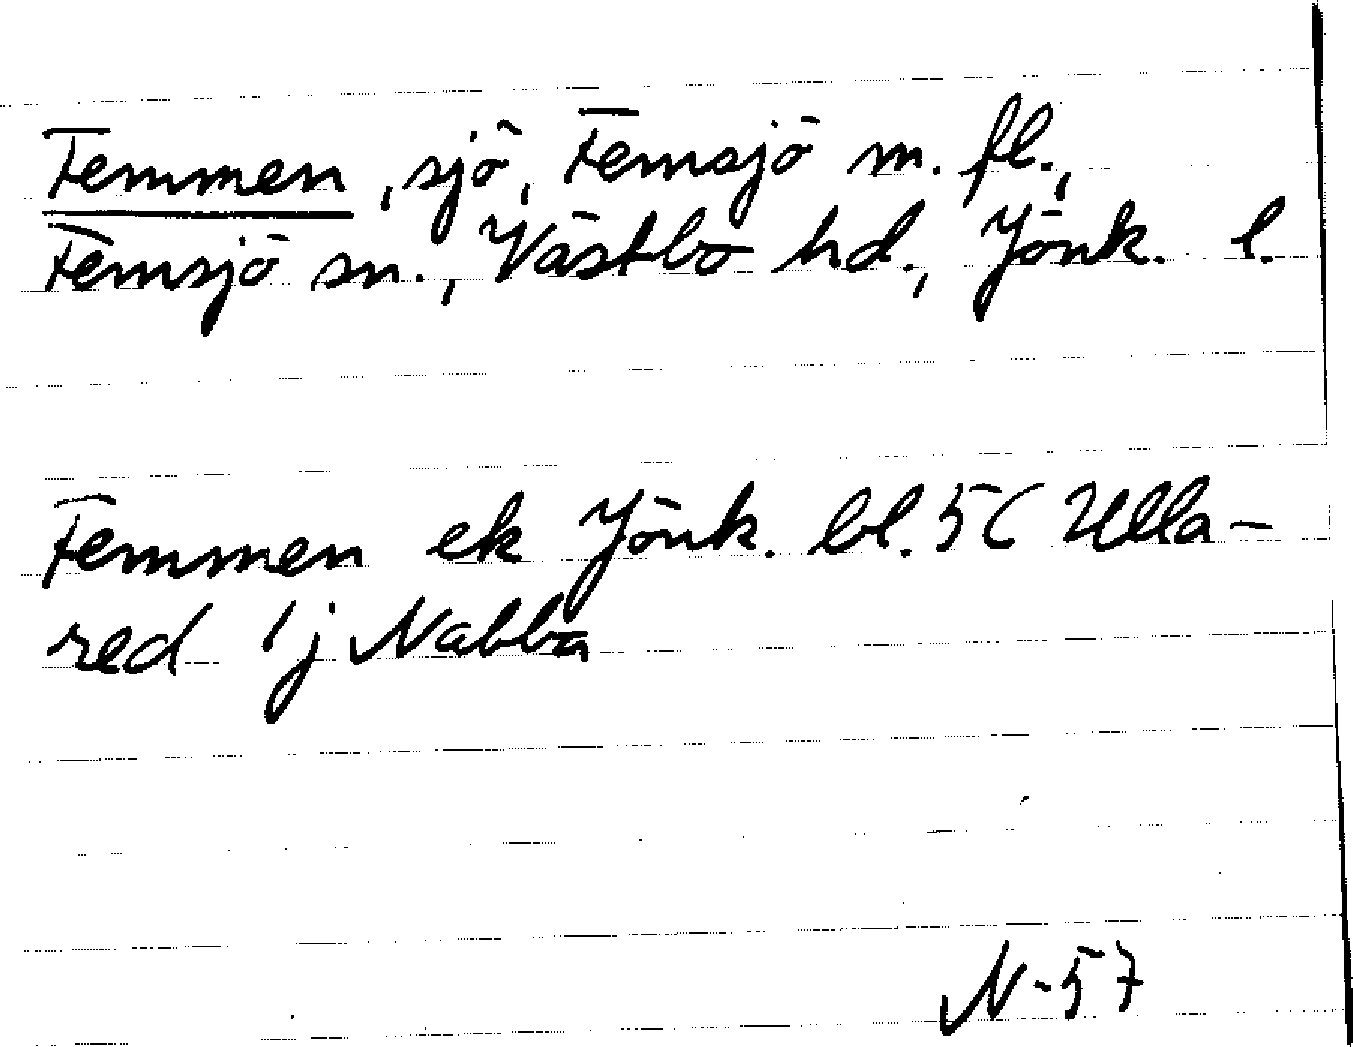 Femmen, sjö, Femsjö m. fl.,
Femsjö sn., Västbo hd., Jönk. l.
Femmen ek Jönk. bl. 5C Ulla-
red 1j Nabba
N-57